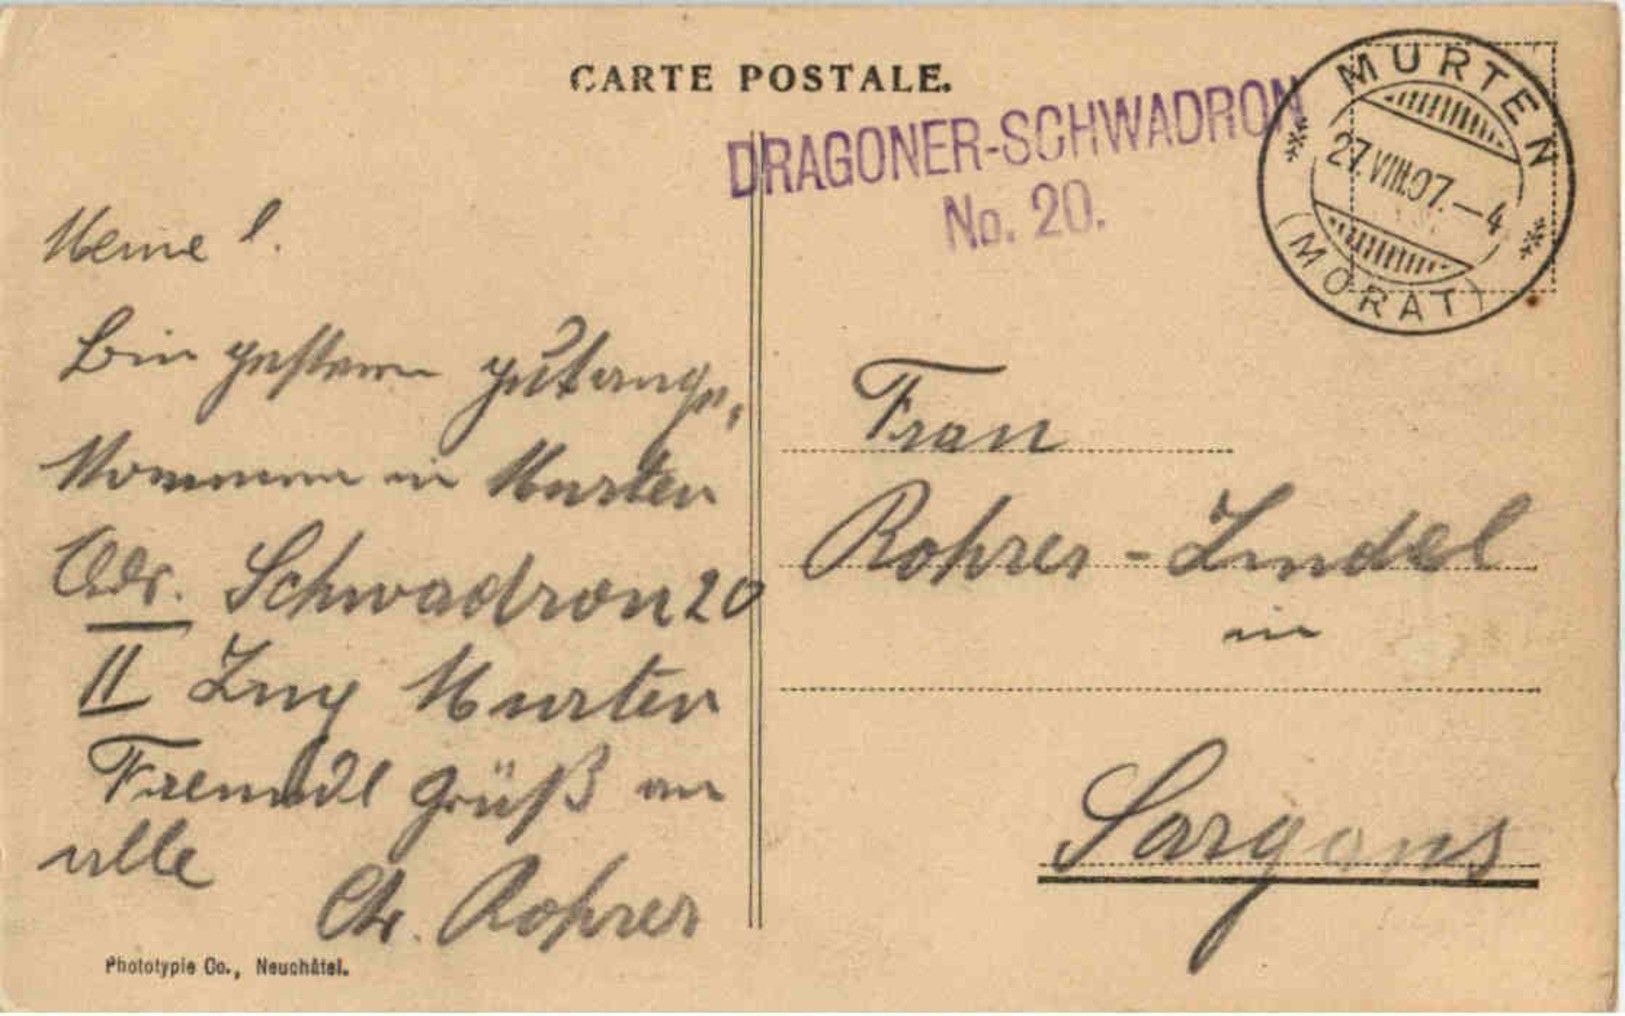 CARTE POSTALE.
DRAGONER-SCHWADRON
No. 20.
MURTEN
27.VIII.07.—4
(MORAT)
Meine l.
Bin gestern gut ange,
kommen in Murten
Adr. Schwadron 20
II Zug Murten
Freundl grüß an
alle
Chr. Rohrer
Phototypie Co., Neuchâtel.
Frau
Rohrer - Zindel
in
Sargans